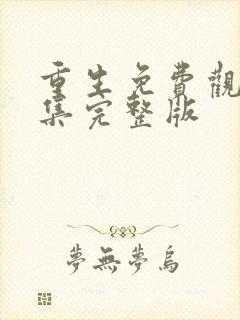 重生免費觀
集完整版
夢無夢烏